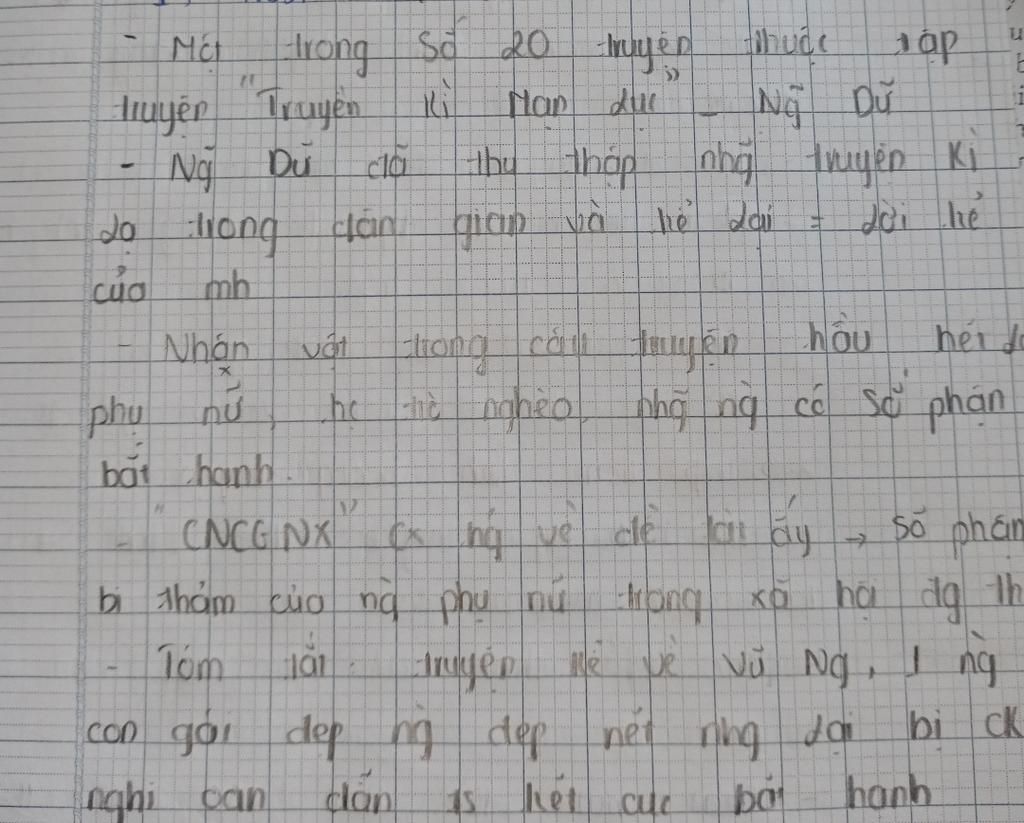 - Một trong số 20 truyện thuộc tập
truyện "Truyền kì Mạn dục" _ Ng~ Dữ
- Ng~ Dữ đã thu thập nhg~ truyện kì
lạ trong dân gian và kể lại = lời kể
của mh
- Nhân vật trong câu truyện hầu hết
phụ nữ, nghèo, nhg~ ng` có số phận
bất hạnh.
- "CNCGNX" ng` về đề tài ấy → số phận
bi thảm của ng` phụ nữ trong xã hội đg th
- Tóm tắt: truyện kể về Vũ Ng, 1 ng`
con gái đẹp ng` đẹp nết nhg lại bị ck
nghi oan dẫn ts kết cục bất hạnh